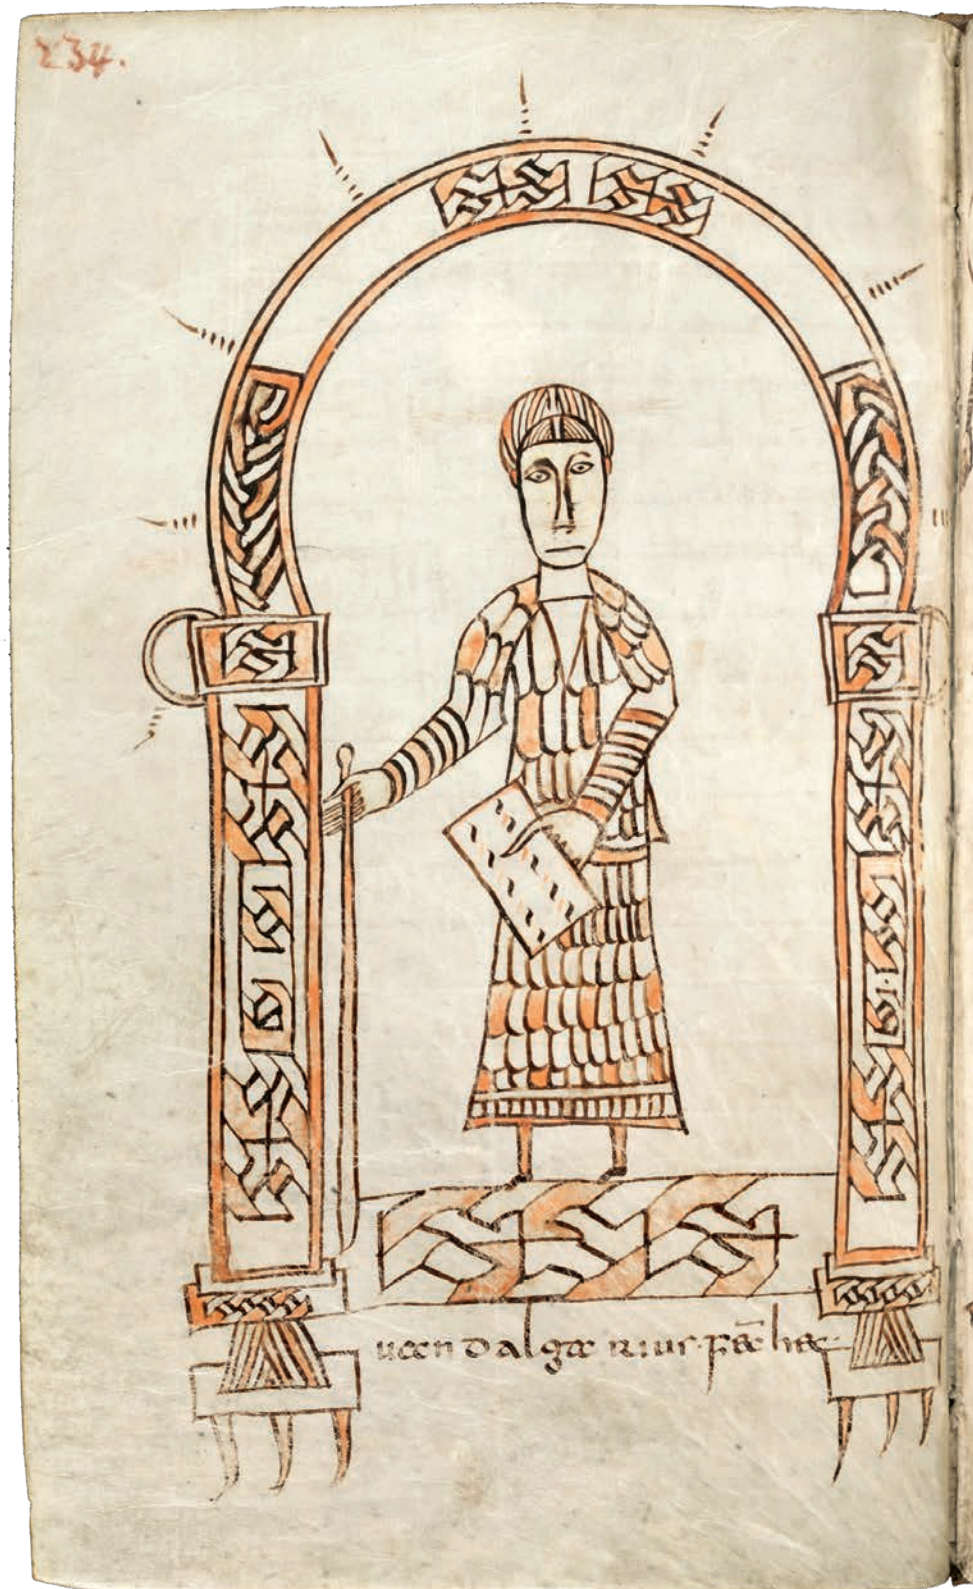 234.
uandalgarius·fec̄ hec·